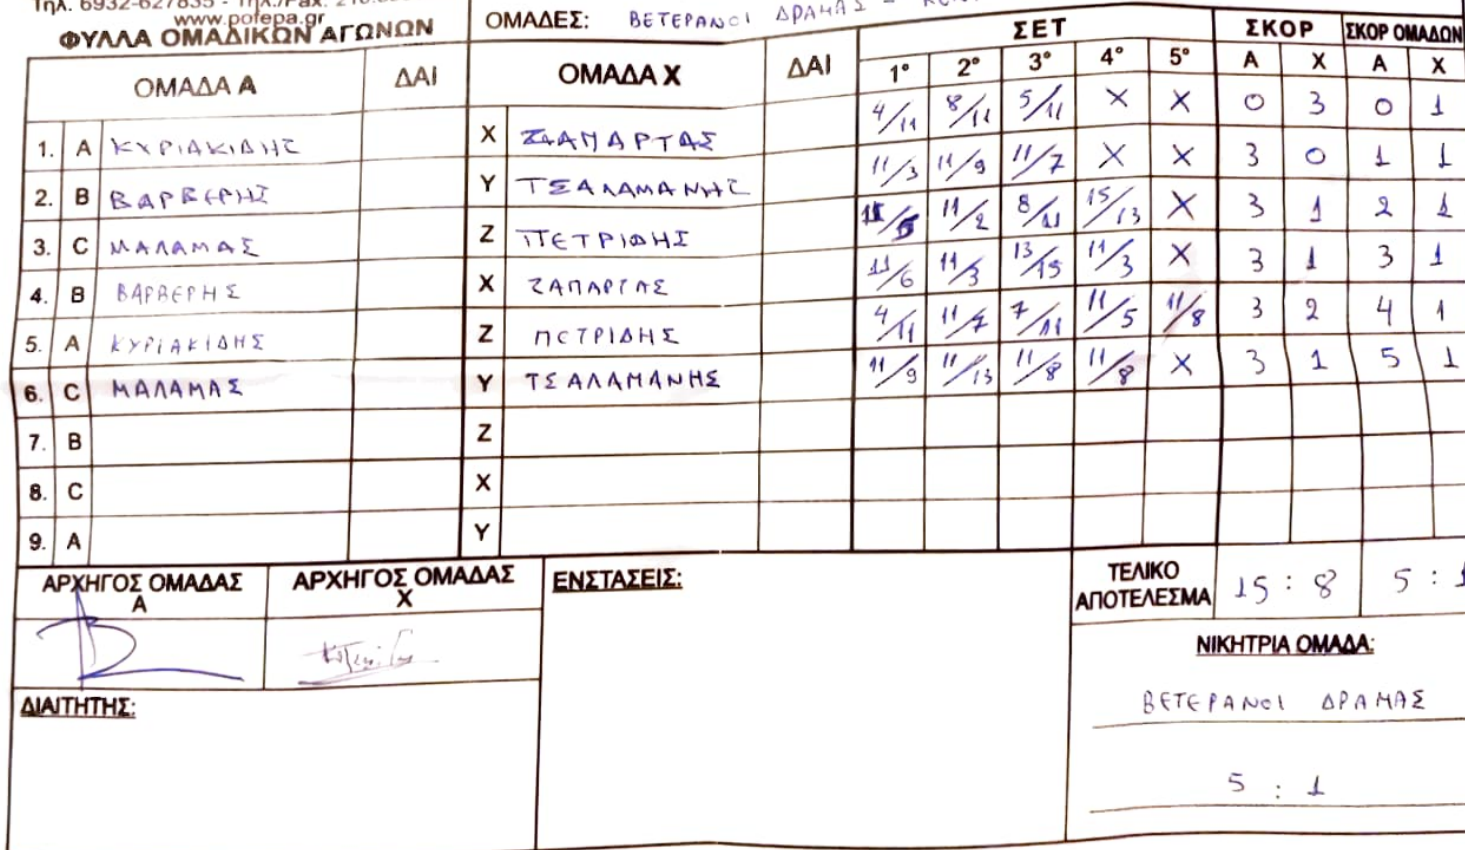 Τηλ. 6932-627835 - Τηλ./Fax: 210.
www.pofepa.gr
ΦΥΛΛΑ ΟΜΑΔΙΚΩΝ ΑΓΩΝΩΝ
ΟΜΑΔΕΣ: ΒΕΤΕΡΑΝΟΙ ΔΡΑΜΑΣ -
ΟΜΑΔΑ Α ΔΑΙ ΟΜΑΔΑ Χ ΔΑΙ ΣΕΤ ΣΚΟΡ ΣΚΟΡ ΟΜΑΔΩΝ
1° 2° 3° 4° 5° Α Χ Α Χ
1. A ΚΥΡΙΑΚΙΔΗΣ X ΖΑΠΑΡΤΑΣ 4/11 8/11 5/11 X X 0 3 0 1
2. B ΒΑΡΒΕΡΗΣ Y ΤΣΑΛΑΜΑΝΗΣ 11/3 11/9 11/7 X X 3 0 1 1
3. C ΜΑΛΑΜΑΣ Z ΠΕΤΡΙΔΗΣ 11/5 11/2 8/11 15/13 X 3 1 2 1
4. B ΒΑΡΒΕΡΗΣ X ΖΑΠΑΡΤΑΣ 11/6 11/3 13/15 11/3 X 3 1 3 1
5. A ΚΥΡΙΑΚΙΔΗΣ Z ΠΕΤΡΙΔΗΣ 4/11 11/7 7/11 11/5 11/8 3 2 4 1
6. C ΜΑΛΑΜΑΣ Y ΤΣΑΛΑΜΑΝΗΣ 11/9 11/13 11/8 11/8 X 3 1 5 1
7. B Z
8. C X
9. A Y
ΑΡΧΗΓΟΣ ΟΜΑΔΑΣ Α ΑΡΧΗΓΟΣ ΟΜΑΔΑΣ Χ ΕΝΣΤΑΣΕΙΣ: ΤΕΛΙΚΟ ΑΠΟΤΕΛΕΣΜΑ 15 : 8 5 : 1
ΝΙΚΗΤΡΙΑ ΟΜΑΔΑ:
ΔΙΑΙΤΗΤΗΣ:
ΒΕΤΕΡΑΝΟΙ ΔΡΑΜΑΣ
5 : 1